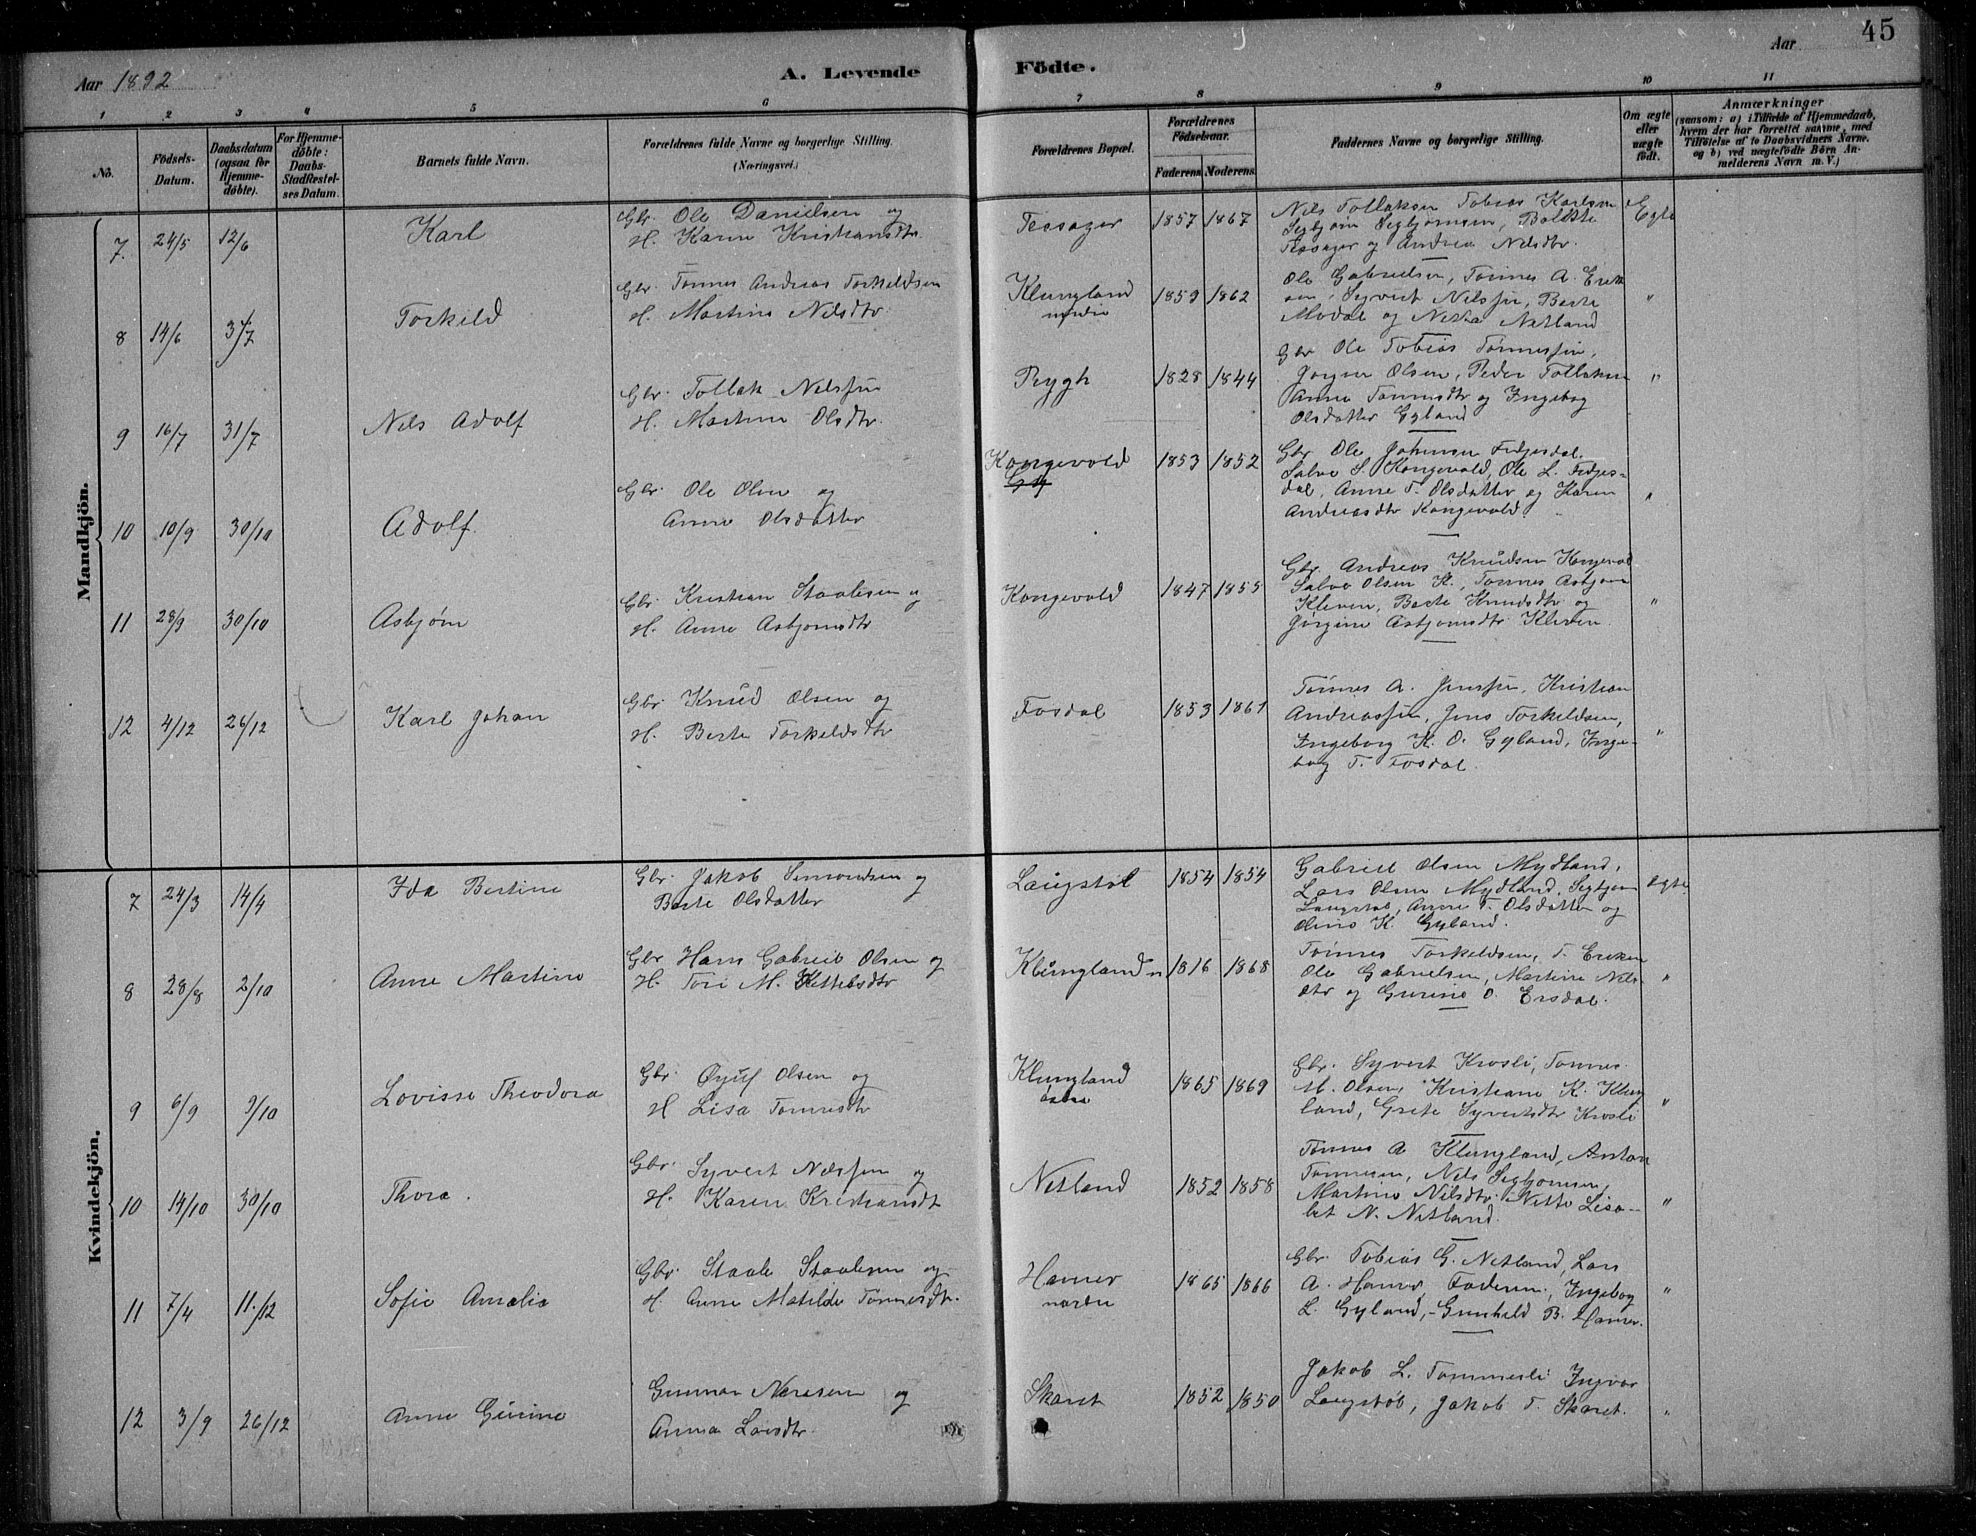 45
Aar 1892
A. Levende Födte.
Aar
1 2 3 4 5 6 7 8 9 10 11
No.
Födsels-Datum.
Daabsdatum (ogsaa for Hjemmedöbte).
For Hjemmedöbte: Daabs-Stadfæstelses Datum.
Barnets fulde Navn.
Forældrenes fulde Navne og borgerlige Stilling. (Næringsvei.)
Forældrenes Bopæl.
Forældrenes Födselsaar.
Faderens. Moderens.
Faddernes Navne og borgerlige Stilling.
Om ægte eller uægte födt.
Anmærkninger
(saasom: a) i Tilfælde af Hjemmedaab, hvem der har forrettet samme, med Tilföielse af to Daabsvidners Navne, og b) ved uægtefödte Börn Anmelderens Navn m. V.)
Mandkjön.
7. 24/5 12/6 Karl
Gbr. Ole Danielsen og
H. Karen Kristiansdtr
Tessager 1857 1867
Nils Tollaksen Tobias Karlsen
Segbjørn Segbjørnsen, Bolette
Tessager og Andrea Nilsdtr.
Egte
8 14/6 3/7 Torkild
Gbr. Tønnes Andreas Torkeldsen
H. Martine Nilsdtr
Klungland
nordre
1859 1862
Ole Gabrielsen, Tønnes A. Erik
sen, Syvert Nilssen, Berte
Modal og Netta Netland
"
9 16/7 31/7 Nils Adolf
Gbr. Tollak Nilssen
H. Martine Olsdtr.
Rygh 1828 1844
Gbr Ole Tobias Tønnessen,
Jørgen Olsen, Peder Tollaksen
Anne Tønnesdtr og Ingebog
Olsdatter Gyland
"
10 10/9 30/10 Adolf.
Gbr. Ole Olsen og
Anne Olsdatter
Kongevold 1853 1852
Gbr Ole Johnsen Fidjesdal.
Salve S. Kongevold, Ole L. Fidjes-
dal, Anne T. Olsdatter og Karen
Andreasdtr Kongevold
"
11 28/9 30/10 Asbjørn
Gbr. Kristian Staalesen og
H. Anne Asbjørnsdtr
Kongevold 1847 1855
Gbr. Andreas Knudsen Kongevold
Salve Olsen K., Tønnes Asbjørn
Kleven, Berte Knudsdtr og
Jørgine Asbjørnsdtr Kleven.
"
12 4/12 26/12 Karl Johan
Gbr Knud Olsen og
H. Berte Torkeldsdtr
Fosdal 1853 1861
Tønnes A. Jenssen, Kristian
Andreassen, Jens Torkeldsen,
Ingeborg K. O. Gyland, Inge-
borg T. Fosdal.
"
Kvindekjön.
7 24/3 14/4 Ida Bertine
Gbr. Jakob Simondsen og
Berte Olsdatter
Laugstøl 1854 1854
Gabriel Olsen Mydland,
Lars Olsen Mydland, Segbjørn
Laugstøl, Anne T. Olsdatter og
Oline K. Gyland.
Egte
8 28/8 2/10 Anne Martine
Gbr Hans Gabriel Olsen og
H. Tori M. Kittelsdtr
Klungland n 1816 1868
Tønnes Torkeldsen, T. Eriksen
Ole Gabrielsen, Martine Nils-
dtr og Gurine O. Ersdal.
"
9 6/9 9/10 Lovisse Theodora
Gbr. Øyuf Olsen og
H Lisa Tønnesdtr
Klungland
østre
1865 1869
Gbr. Syvert Krosli, Tønnes
M. Olsen, Kristiane K. Klung
land, Grete Syvertsdtr Krosli
"
10 14/10 30/10 Thora.
Gbr. Syvert Nilssen og
H. Karen Kristiansdt
Netland 1852 1858
Tønnes A Klungland, Anton
Tønnesen, Nils Segbjørnsen,
Martine Nilsdtr. Nette Lisa-
bet N. Netland.
"
11 7/4 11/12 Sofie Amalie
Gbr. Staale Staalesen og
H. Anne Matilde Tønnesdtr.
Hamer
nordre
1865 1866
Gbr. Tobias G. Netland, Lars
A. Hamer, Faderen, Ingebog
L. Gyland, Gunhild B. Hamer.
"
12 3/9 26/12 Anne Gurine
Gunnar Næresen og
Anna Larsdtr.
Skaret 1852 1850
Jakob L. Tømmerli Ingvar
Laugstøl, Jakob T. Skaret.
"